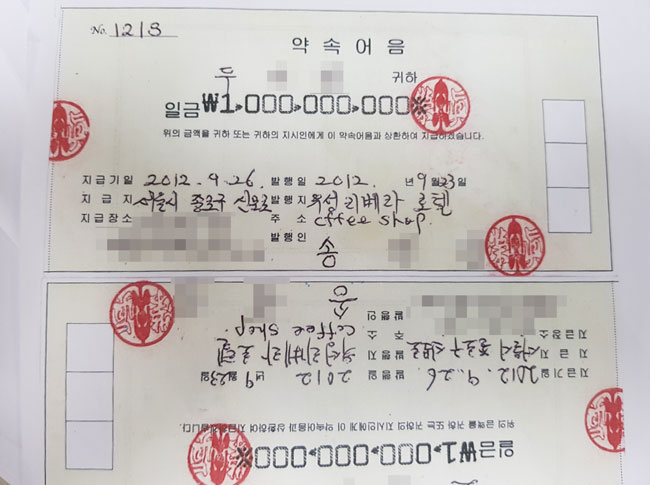 No. 1213
약속어음
두 귀하
일금 ₩1,000,000,000※
위의 금액을 귀하 또는 귀하의 지시인에게 이 약속어음과 상환하여 지급하겠습니다.
지급기일 2012. 9. 26. 발행일 2012. 년 9월 23일
지급지 서울시 종로구 신문로 발행지 유성 리베라 호텔
지급장소 주소 cffee shop.
발행인 송
송
발행인
지급장소 주소 coffee shop.
지급지 서울시 종로구 신문로 발행지 유성리베라 호텔
지급기일 2012. 9. 26. 발행일 2012 년 9월 23일
위의 금액을 귀하 또는 귀하의 지시인에게 이 약속어음과 상환하여 지급하겠습니다.
일금 ₩1,000,000,000※